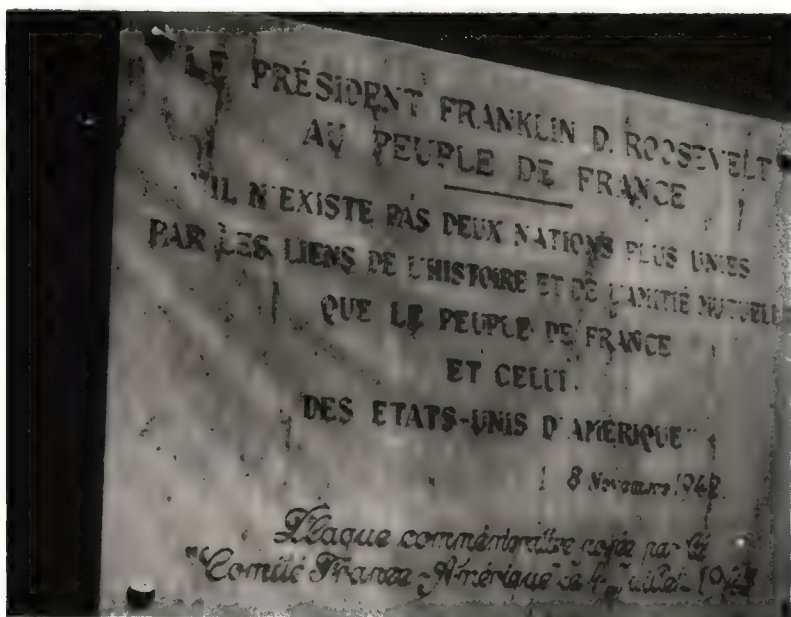 LE PRÉSIDENT FRANKLIN D. ROOSEVELT
AU PEUPLE DE FRANCE
"IL N'EXISTE PAS DEUX NATIONS PLUS UNIES
PAR LES LIENS DE L'HISTOIRE ET DE L'AMITIÉ MUTUELLE
QUE LE PEUPLE DE FRANCE
ET CELUI
DES ETATS-UNIS D'AMÉRIQUE"
8 Novembre 1942
Plaque commémorative par le
"Comité France-Amérique" ce Juillet